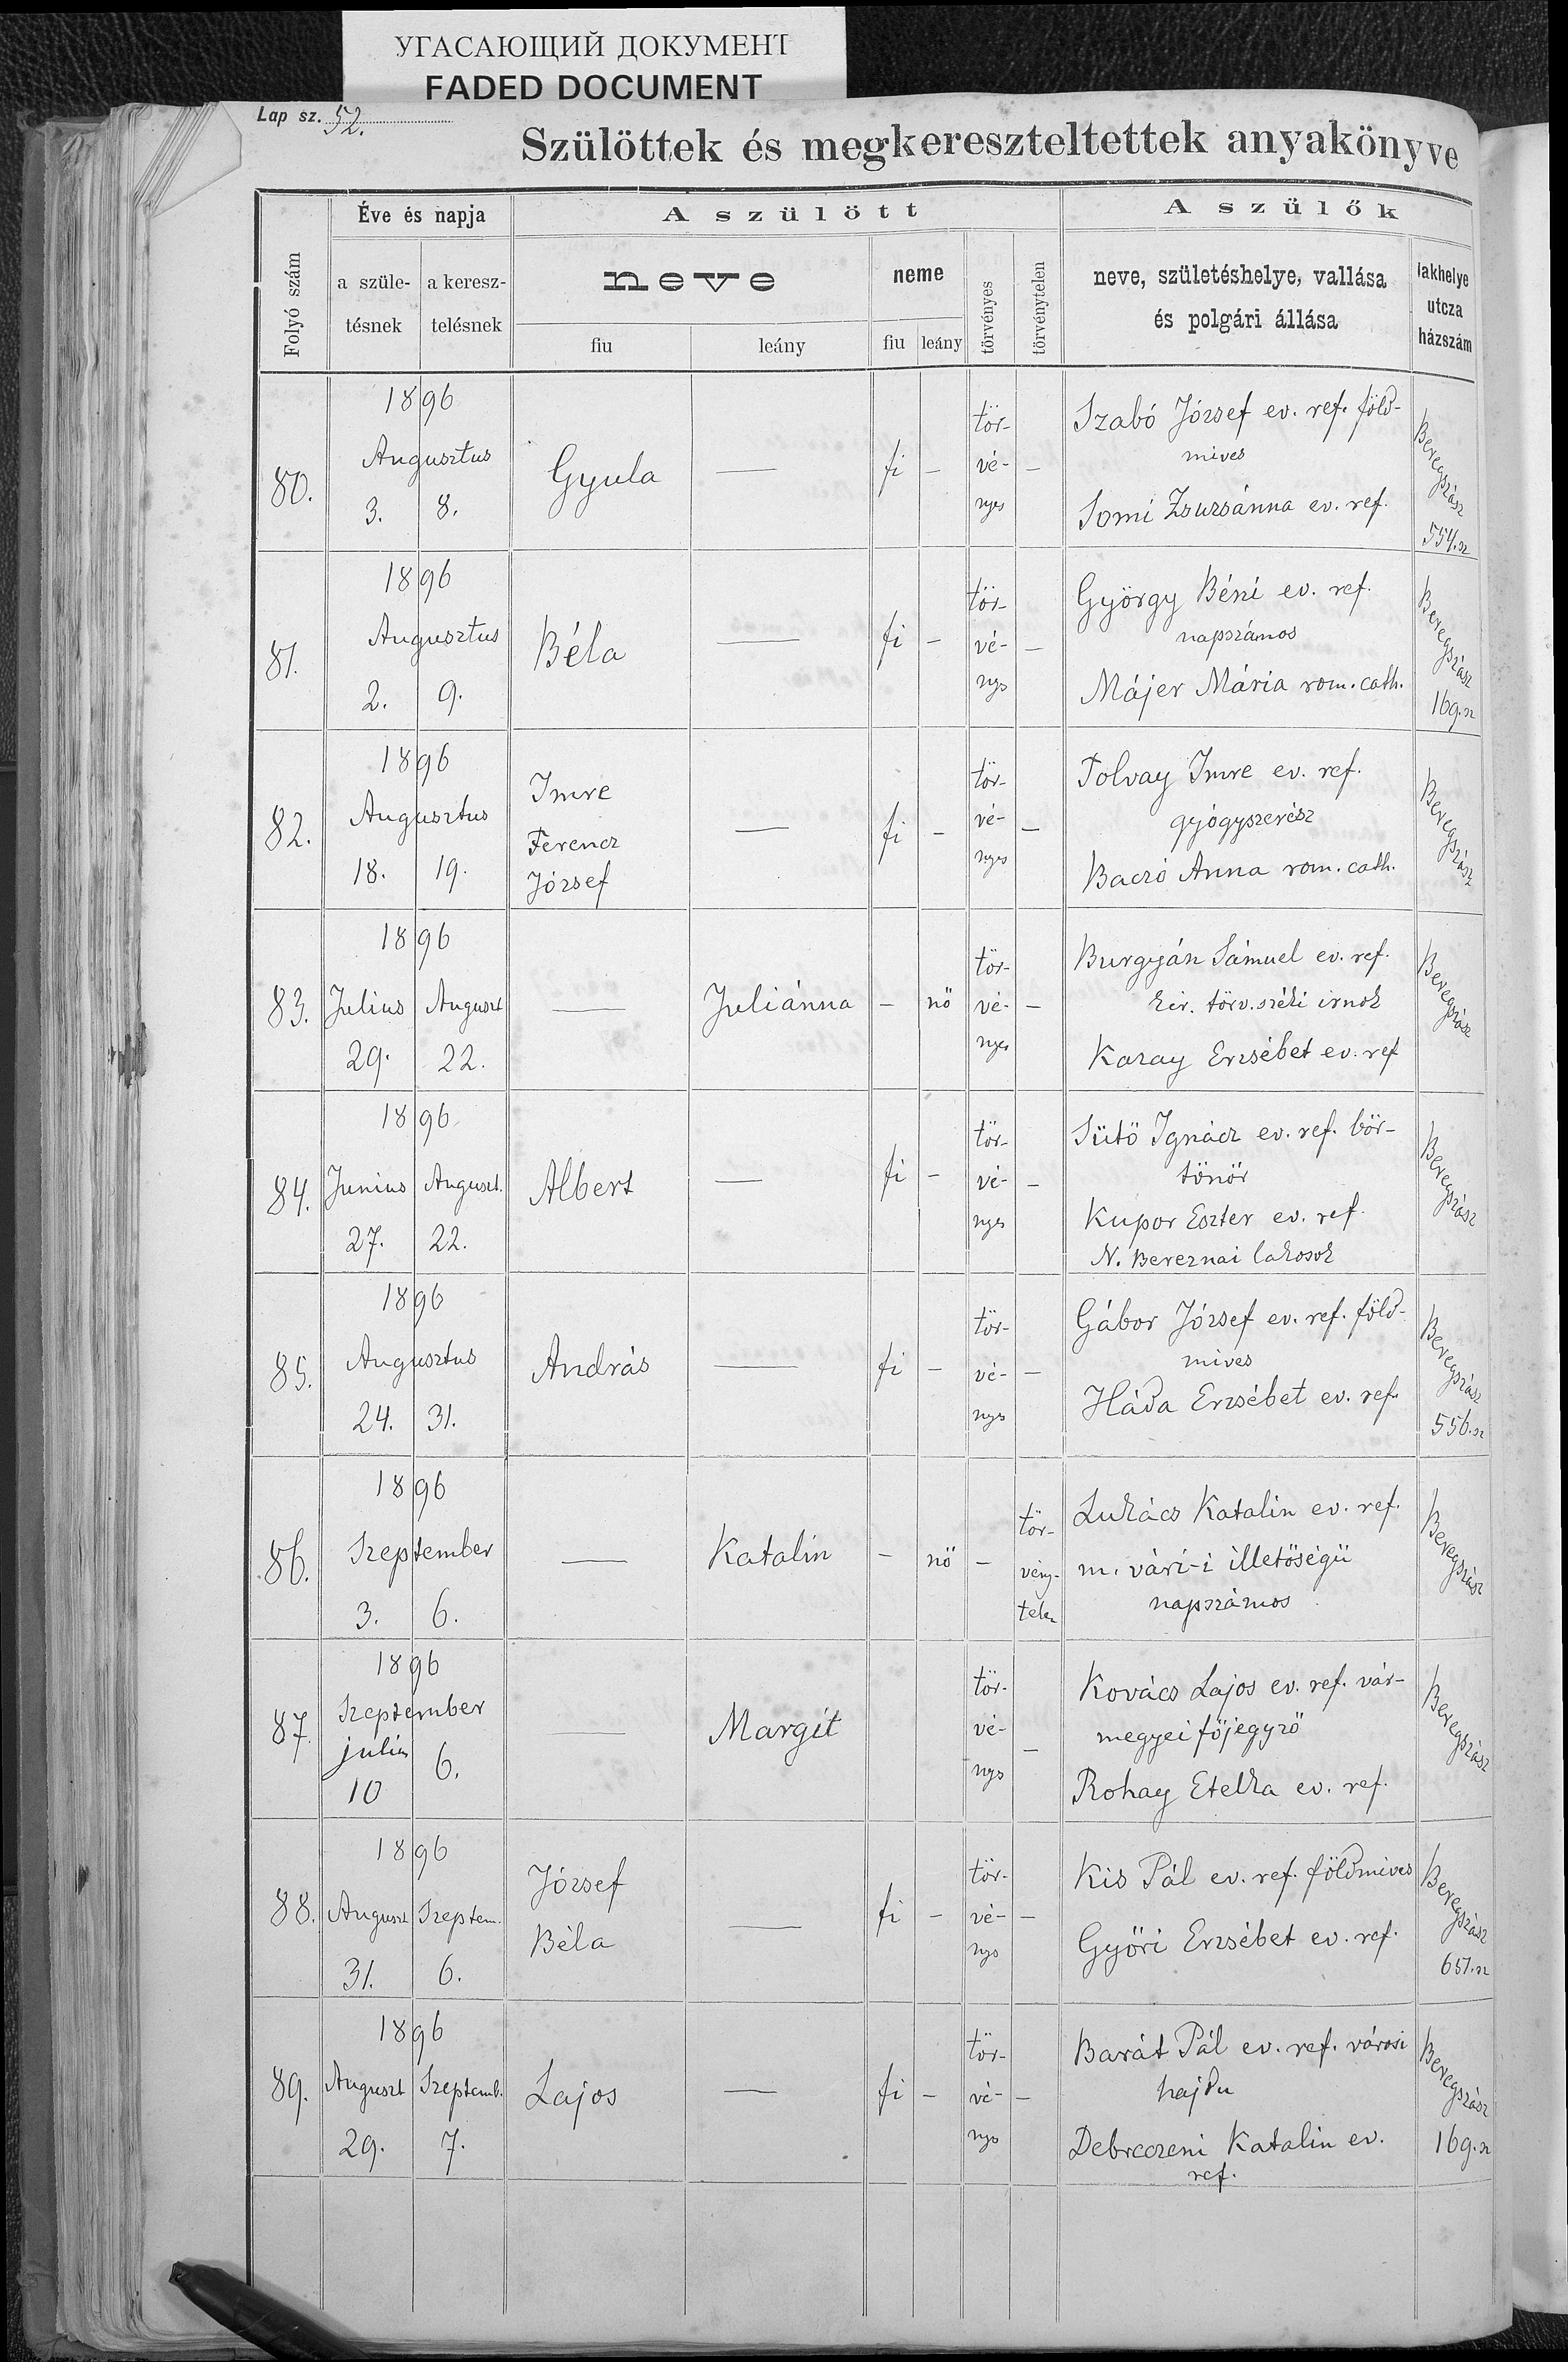 УГАСАЮЩИЙ ДОКУМЕНТ
FADED DOCUMENT
Lap sz. 52.
Szülöttek és megkereszteltettek anyakönyve
Folyó szám
Éve és napja
a szüle-
tésnek
a keresz-
telésnek
A szülött
neve
fiu
leány
neme
fiu
leány
törvényes
törvénytelen
A szülők
neve, születéshelye, vallása
és polgári állása
lakhelye
utcza
házszám
80.
1896
Augusztus
3. 8.
Gyula
—
fi
–
tör-
vé-
nyes
–
Szabó József ev. ref. föld-
mives
Somi Zsuzsánna ev. ref.
Beregszász
554. sz
81.
1896
Augusztus
2. 9.
Béla
—
fi
–
tör-
vé-
nys
–
György Béni ev. ref.
napszámos
Májer Mária rom. cath.
Beregszász
169. sz
82.
1896
Augusztus
18. 19.
Imre
Ferencz
József
—
fi
–
tör-
vé-
nyes
–
Tolvay Imre ev. ref.
gyógyszerész
Baczó Anna rom. cath.
Beregszász
83.
1896
Julius Auguszt
29. 22.
—
Juliánna
–
nö
tör-
vé-
nyes
–
Burgyán Sámuel ev. ref.
kir. törv.széki irnok
Kazay Erzsébet ev. ref
Beregszász
84.
1896
Junius Auguszt.
27. 22.
Albert
—
fi
–
tör-
vé-
nyes
–
Sütö Ignácz ev. ref. bör-
tönör
Kupor Eszter ev. ref.
N. Bereznai lakosok
Beregszász
85.
1896
Augusztus
24. 31.
András
—
fi
–
tör-
vé-
nys
–
Gábor József ev. ref. föld-
mives
Háda Erzsébet ev. ref.
Beregszász
556. sz
86.
1896
Szeptember
3. 6.
—
Katalin
–
nö
–
tör-
vény-
telen
Lukács Katalin ev. ref.
m. vári-i illetöségü
napszámos
Beregszász
87.
1896
Szeptember
julius
10 6.
—
Margit
tör-
vé-
nys
–
Kovács Lajos ev. ref. vár-
megyei föjegyzö
Rohay Etelka ev. ref.
Beregszász
88.
1896
Auguszt Szeptem.
31. 6.
József
Béla
—
fi
–
tör-
vé-
nys
–
Kis Pál ev. ref. földmives
Györi Erzsébet ev. ref.
Beregszász
651. sz
89.
1896
Auguszt Szeptemb.
29. 7.
Lajos
—
fi
–
tör-
vé-
nys
–
Barát Pál ev. ref. városi
hajdu
Debreczeni Katalin ev.
ref.
Beregszász
169. sz